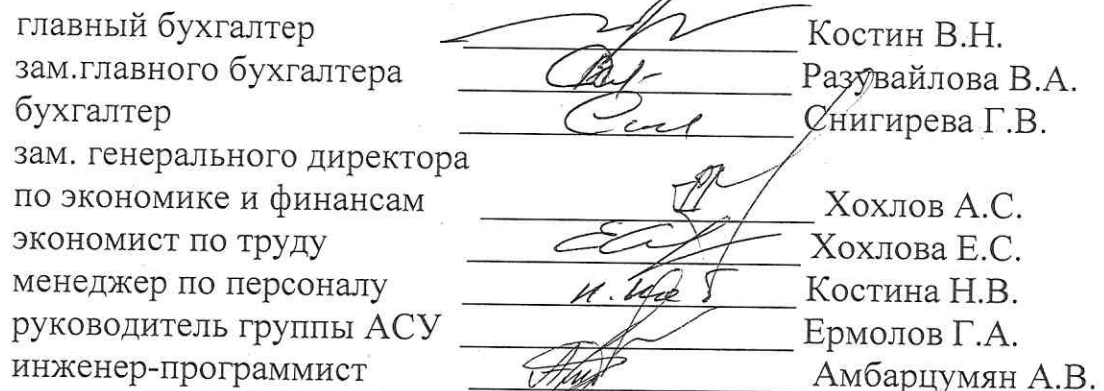 главный бухгалтер Костин В.Н.
зам.главного бухгалтера Разувайлова В.А.
бухгалтер Снигирева Г.В.
зам. генерального директора
по экономике и финансам Хохлов А.С.
экономист по труду Хохлова Е.С.
менеджер по персоналу Костина Н.В.
руководитель группы АСУ Ермолов Г.А.
инженер-программист Амбарцумян А.В.